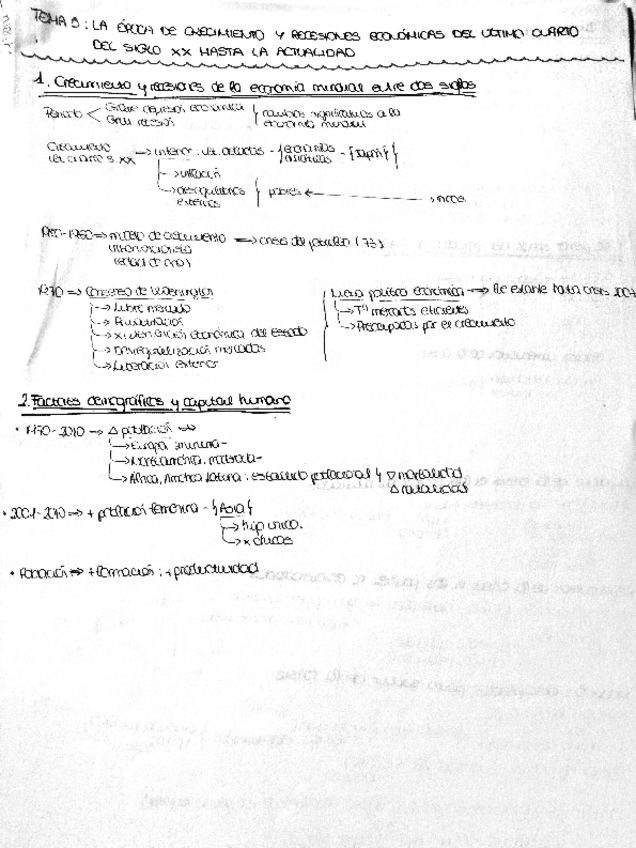 TEMA 9: LA ÉPOCA DE CRECIMIENTO Y RECESIONES ECONÓMICAS DEL ULTIMO CUARTO
DEL SIGLO XX HASTA LA ACTUALIDAD
1. Crecimiento y recesiones de la economía mundial entre dos siglos
Periodo < Grave depresión económica
Gran recesión
cambios significativos a la
economía mundial
Crecimiento
→ inferior
economías
asiáticas - {Japón}
→ inflación
→ desequilibrios
externos
pobres ←
→ ricos
1950-1960 ⇒ modelo de crecimiento ⇒ crisis del petróleo (73)
1970 ⇒ Consenso de Washington
→ Libre mercado
→ Privatización
→ x intervención económica del estado
→ Desregulación mercados
→ Liberación exterior
política económica → crisis 2007
→ Tª mercados eficientes
→ Preocupados por el crecimiento
2. Factores demográficos y capital humano
• 1970-2010 → Δ población
→ Europa
→ Norteamérica
→ África, América Latina: población
∇ mortalidad
Δ natalidad
• 2001-2010 ⇒ + población femenina - {Asia}
→ hijo único.
→ x chicas
⇒ + formación: + productividad